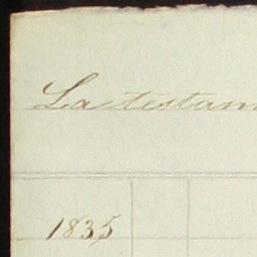 La testam
1835